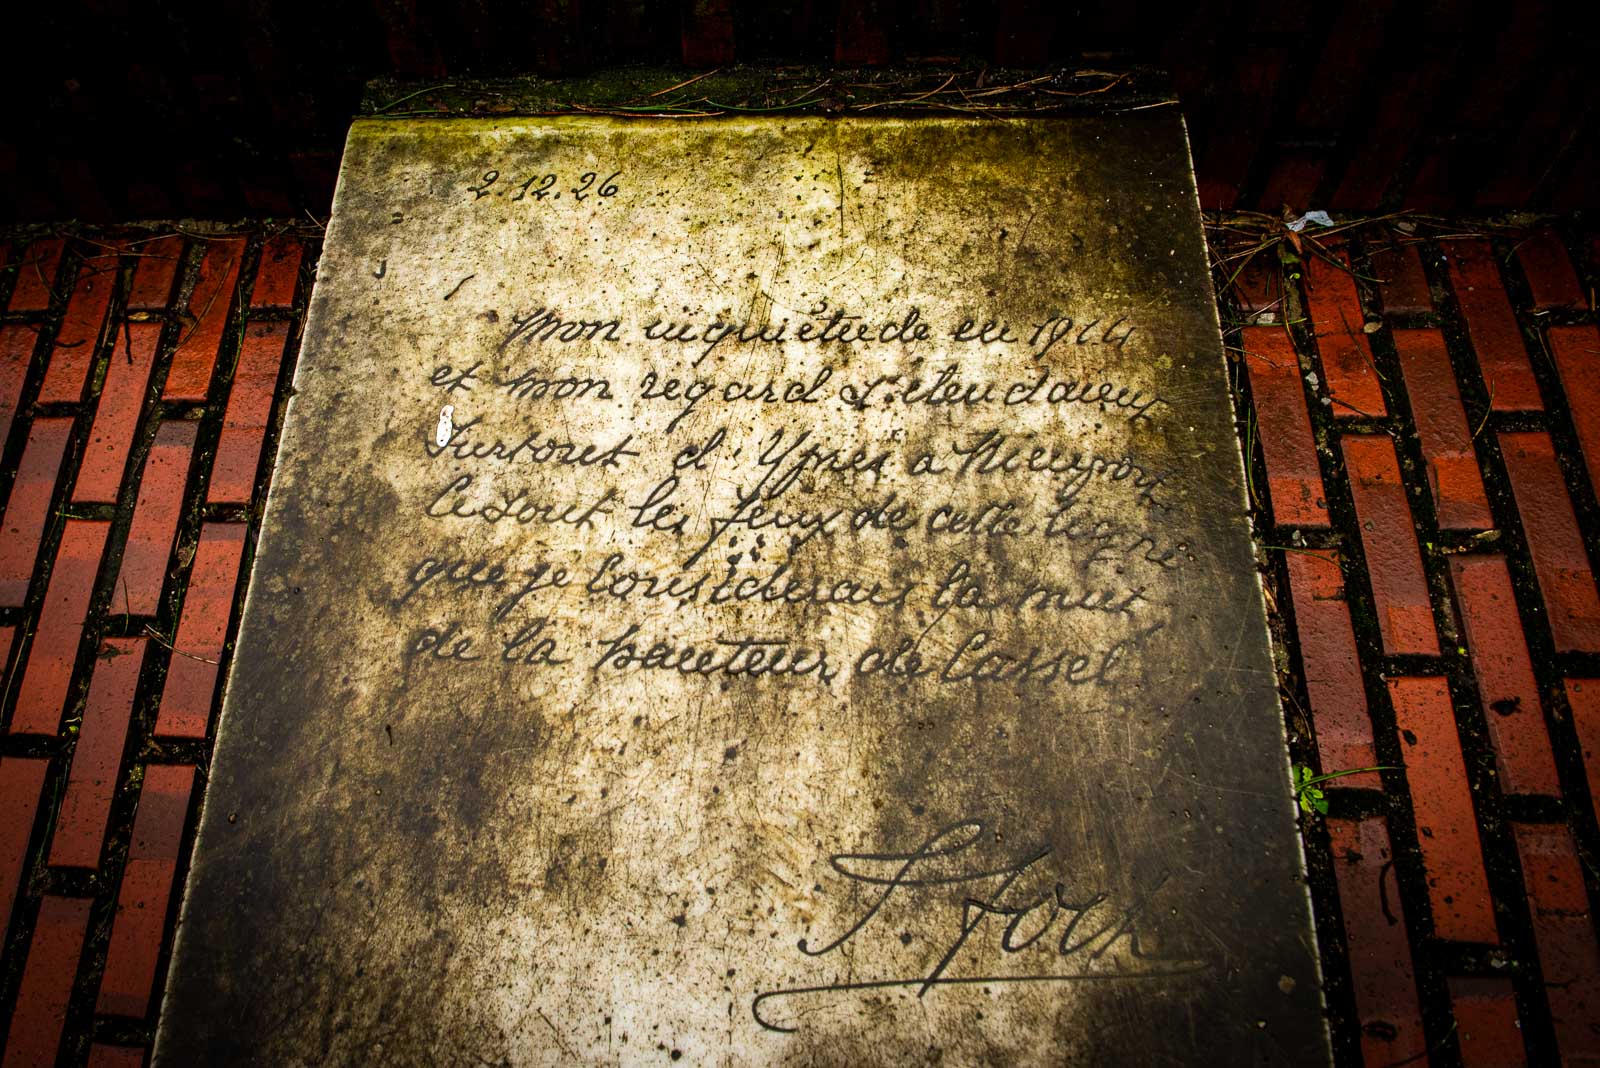 2.12.26
Mon inquiétude en 1914
et mon regard s'étendaient
surtout d'Ypres à Nieuport
ce sont les feux de cette ligne
que je considerais la nuit
de la hauteur de Cassel
F. Foch